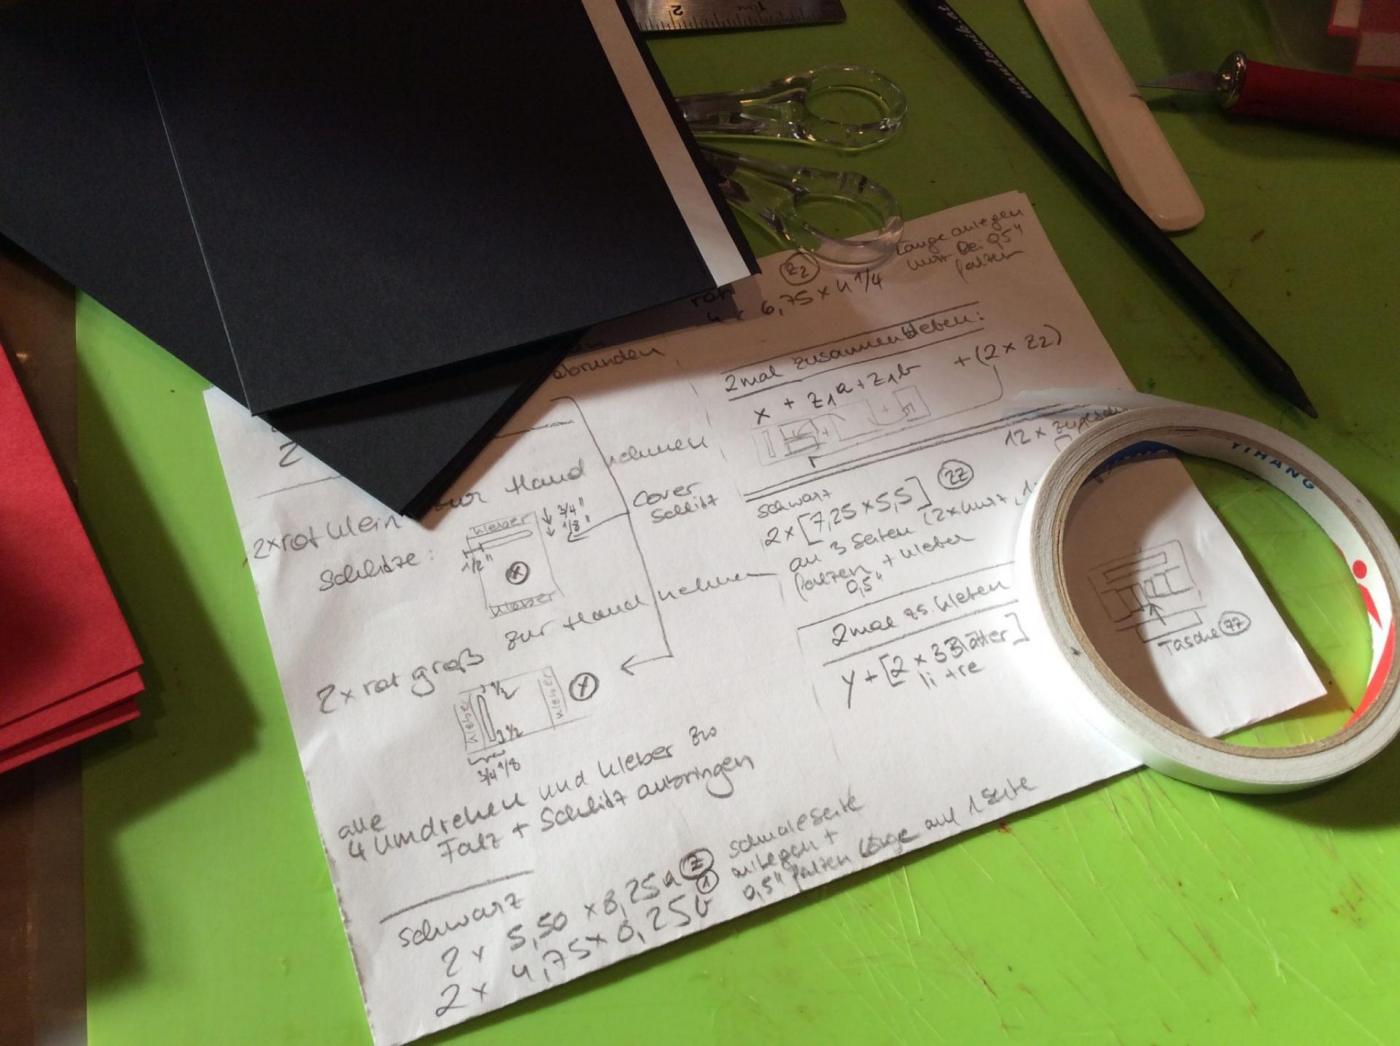 2
mandarik.at
YIHANG
Z2
Länge anlegen
nur bei 0,5"
falzen
rot
4 x 6,75 x 4 1/4
abrunden
2
2mal zusammenkleben:
x + Z1a + Z1b + (2 x Z2)
2x rot klein zur Hand nehmen
Schlitze:
Kleber
3/4"
1/8"
1/2"
x
Kleber
Cover
Schlitz
zur Hand nehmen
2x rot groß
1/2
Kleber
Kleber
x
1/2
3/4 1/8
alle
4 umdrehen und Kleber zw
Falz + Schlitz anbringen
schwarz
2 x 5,50 x 8,25 a Z
2 x 4,75 x 8,25 b 1
schmale Seite
anlegen +
0,5" falzen Länge auf 1 Seite
12 x
schwarz
2 x [7,25 x 5,5] ZZ
an 3 Seiten (2x kurz, 1
falzen + Kleber
0,5"
2mal zs. kleben
y + [2 x 3 Blätter]
li + re
Tasche ZZ